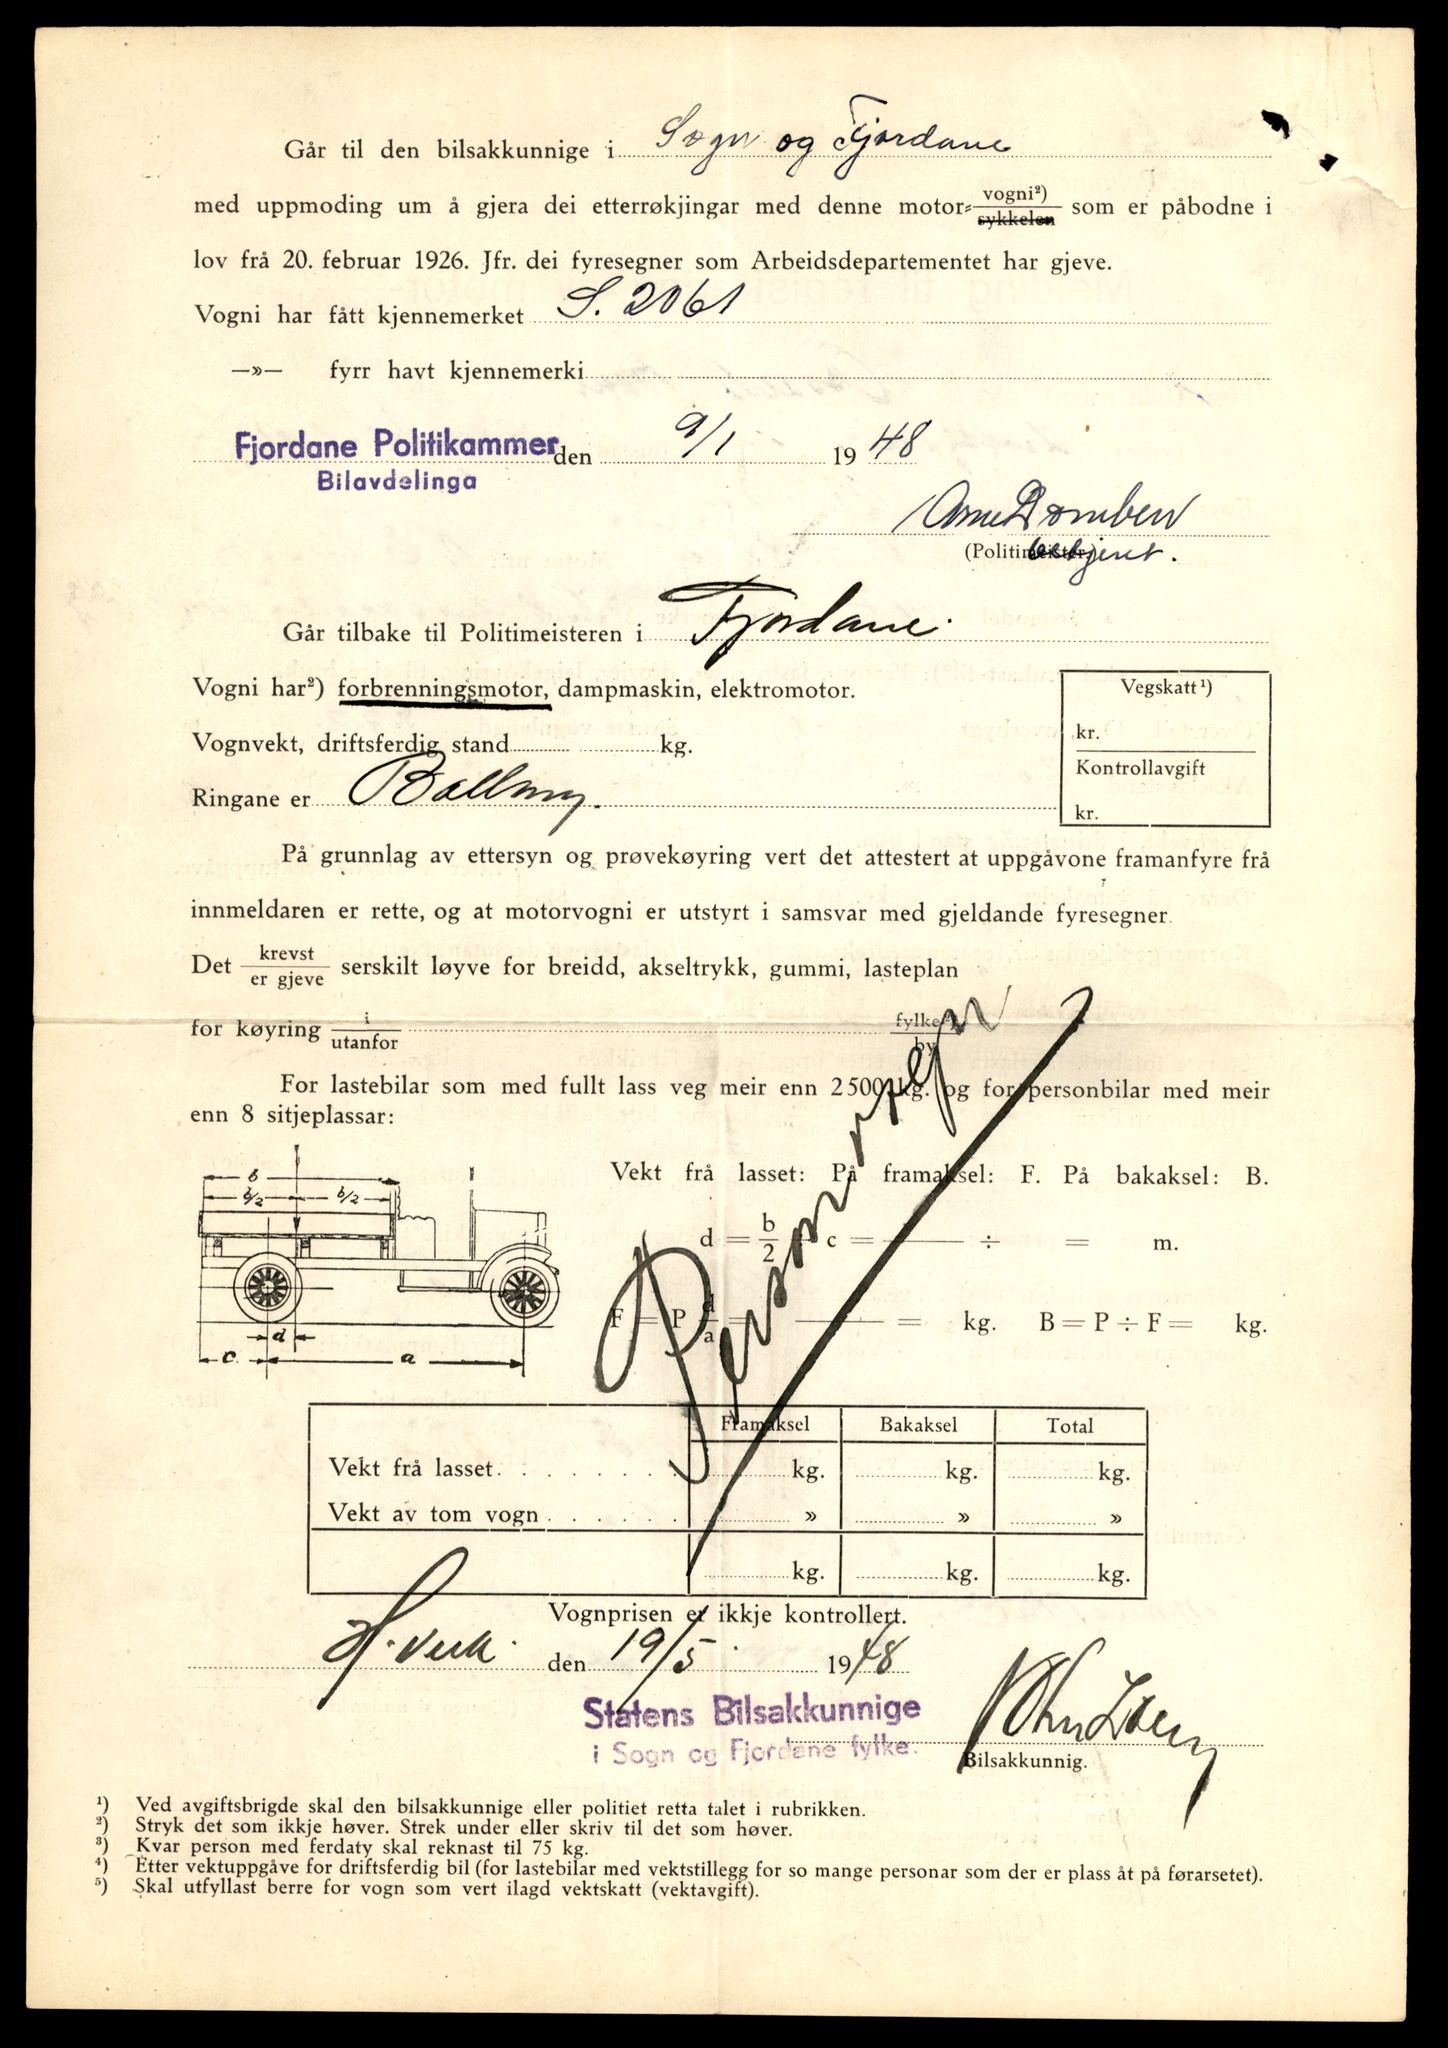 Går til den bilsakkunnige i Sogn og Fjordane
med uppmoding um å gjera dei etterrøkjingar med denne motor- vogni²) / sykkelen som er påbodne i
lov frå 20. februar 1926. Jfr. dei fyresegner som Arbeidsdepartementet har gjeve.
Vogni har fått kjennemerket S. 2061
—»— fyrr havt kjennemerki
Fjordane Politikammer den 9/1 1948
Bilavdelinga
Arne
(Politimeister) betjent.
Går tilbake til Politimeisteren i Fjordane.
Vogni har²) forbrenningsmotor, dampmaskin, elektromotor.
Vegskatt¹)
kr.
Kontrollavgift
kr.
Vognvekt, driftsferdig stand kg.
Ringane er Ballong.
På grunnlag av ettersyn og prøvekøyring vert det attestert at uppgåvone framanfyre frå
innmeldaren er rette, og at motorvogni er utstyrt i samsvar med gjeldande fyresegner
Det krevst / er gjeve serskilt løyve for breidd, akseltrykk, gummi, lasteplan
for køyring i / utanfor fylke²) / by
For lastebilar som med fullt lass veg meir enn 2500 kg. og for personbilar med meir
enn 8 sitjeplassar:
b
b/2 b/2
d
c a
Vekt frå lasset: På framaksel: F. På bakaksel: B.
d = b/2 ÷ c = ÷ = m.
F = P d/a = = kg. B = P ÷ F = kg.
Personvogn
Framaksel Bakaksel Total
Vekt frå lasset kg. kg. kg.
Vekt av tom vogn » » »
kg. kg. kg.
Vognprisen er ikkje kontrollert.
den 19/5 1948
Statens Bilsakkunnige
i Sogn og Fjordane fylke.
John
Bilsakkunnig.
¹) Ved avgiftsbrigde skal den bilsakkunnige eller politiet retta talet i rubrikken.
²) Stryk det som ikkje høver. Strek under eller skriv til det som høver.
³) Kvar person med ferdaty skal reknast til 75 kg.
⁴) Etter vektuppgåve for driftsferdig bil (for lastebilar med vektstillegg for so mange personar som der er plass åt på førarsetet).
⁵) Skal utfyllast berre for vogn som vert ilagd vektskatt (vektavgift).